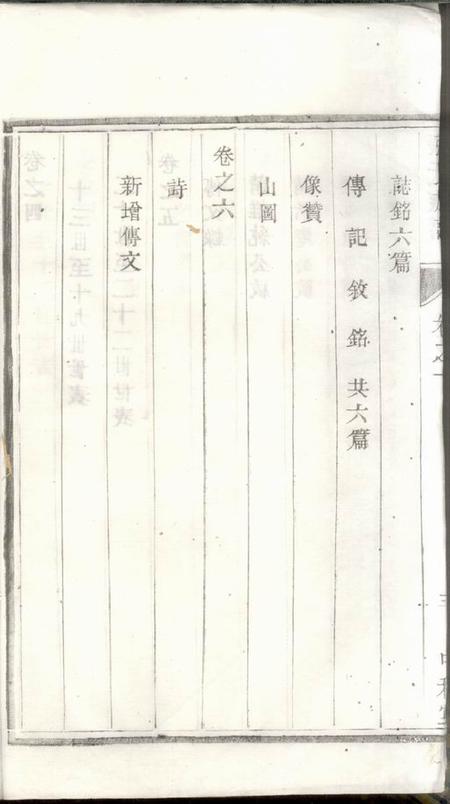 誌銘六篇
傳記敘銘共六篇
像贊
山圖
卷之六
詩
新增傳文